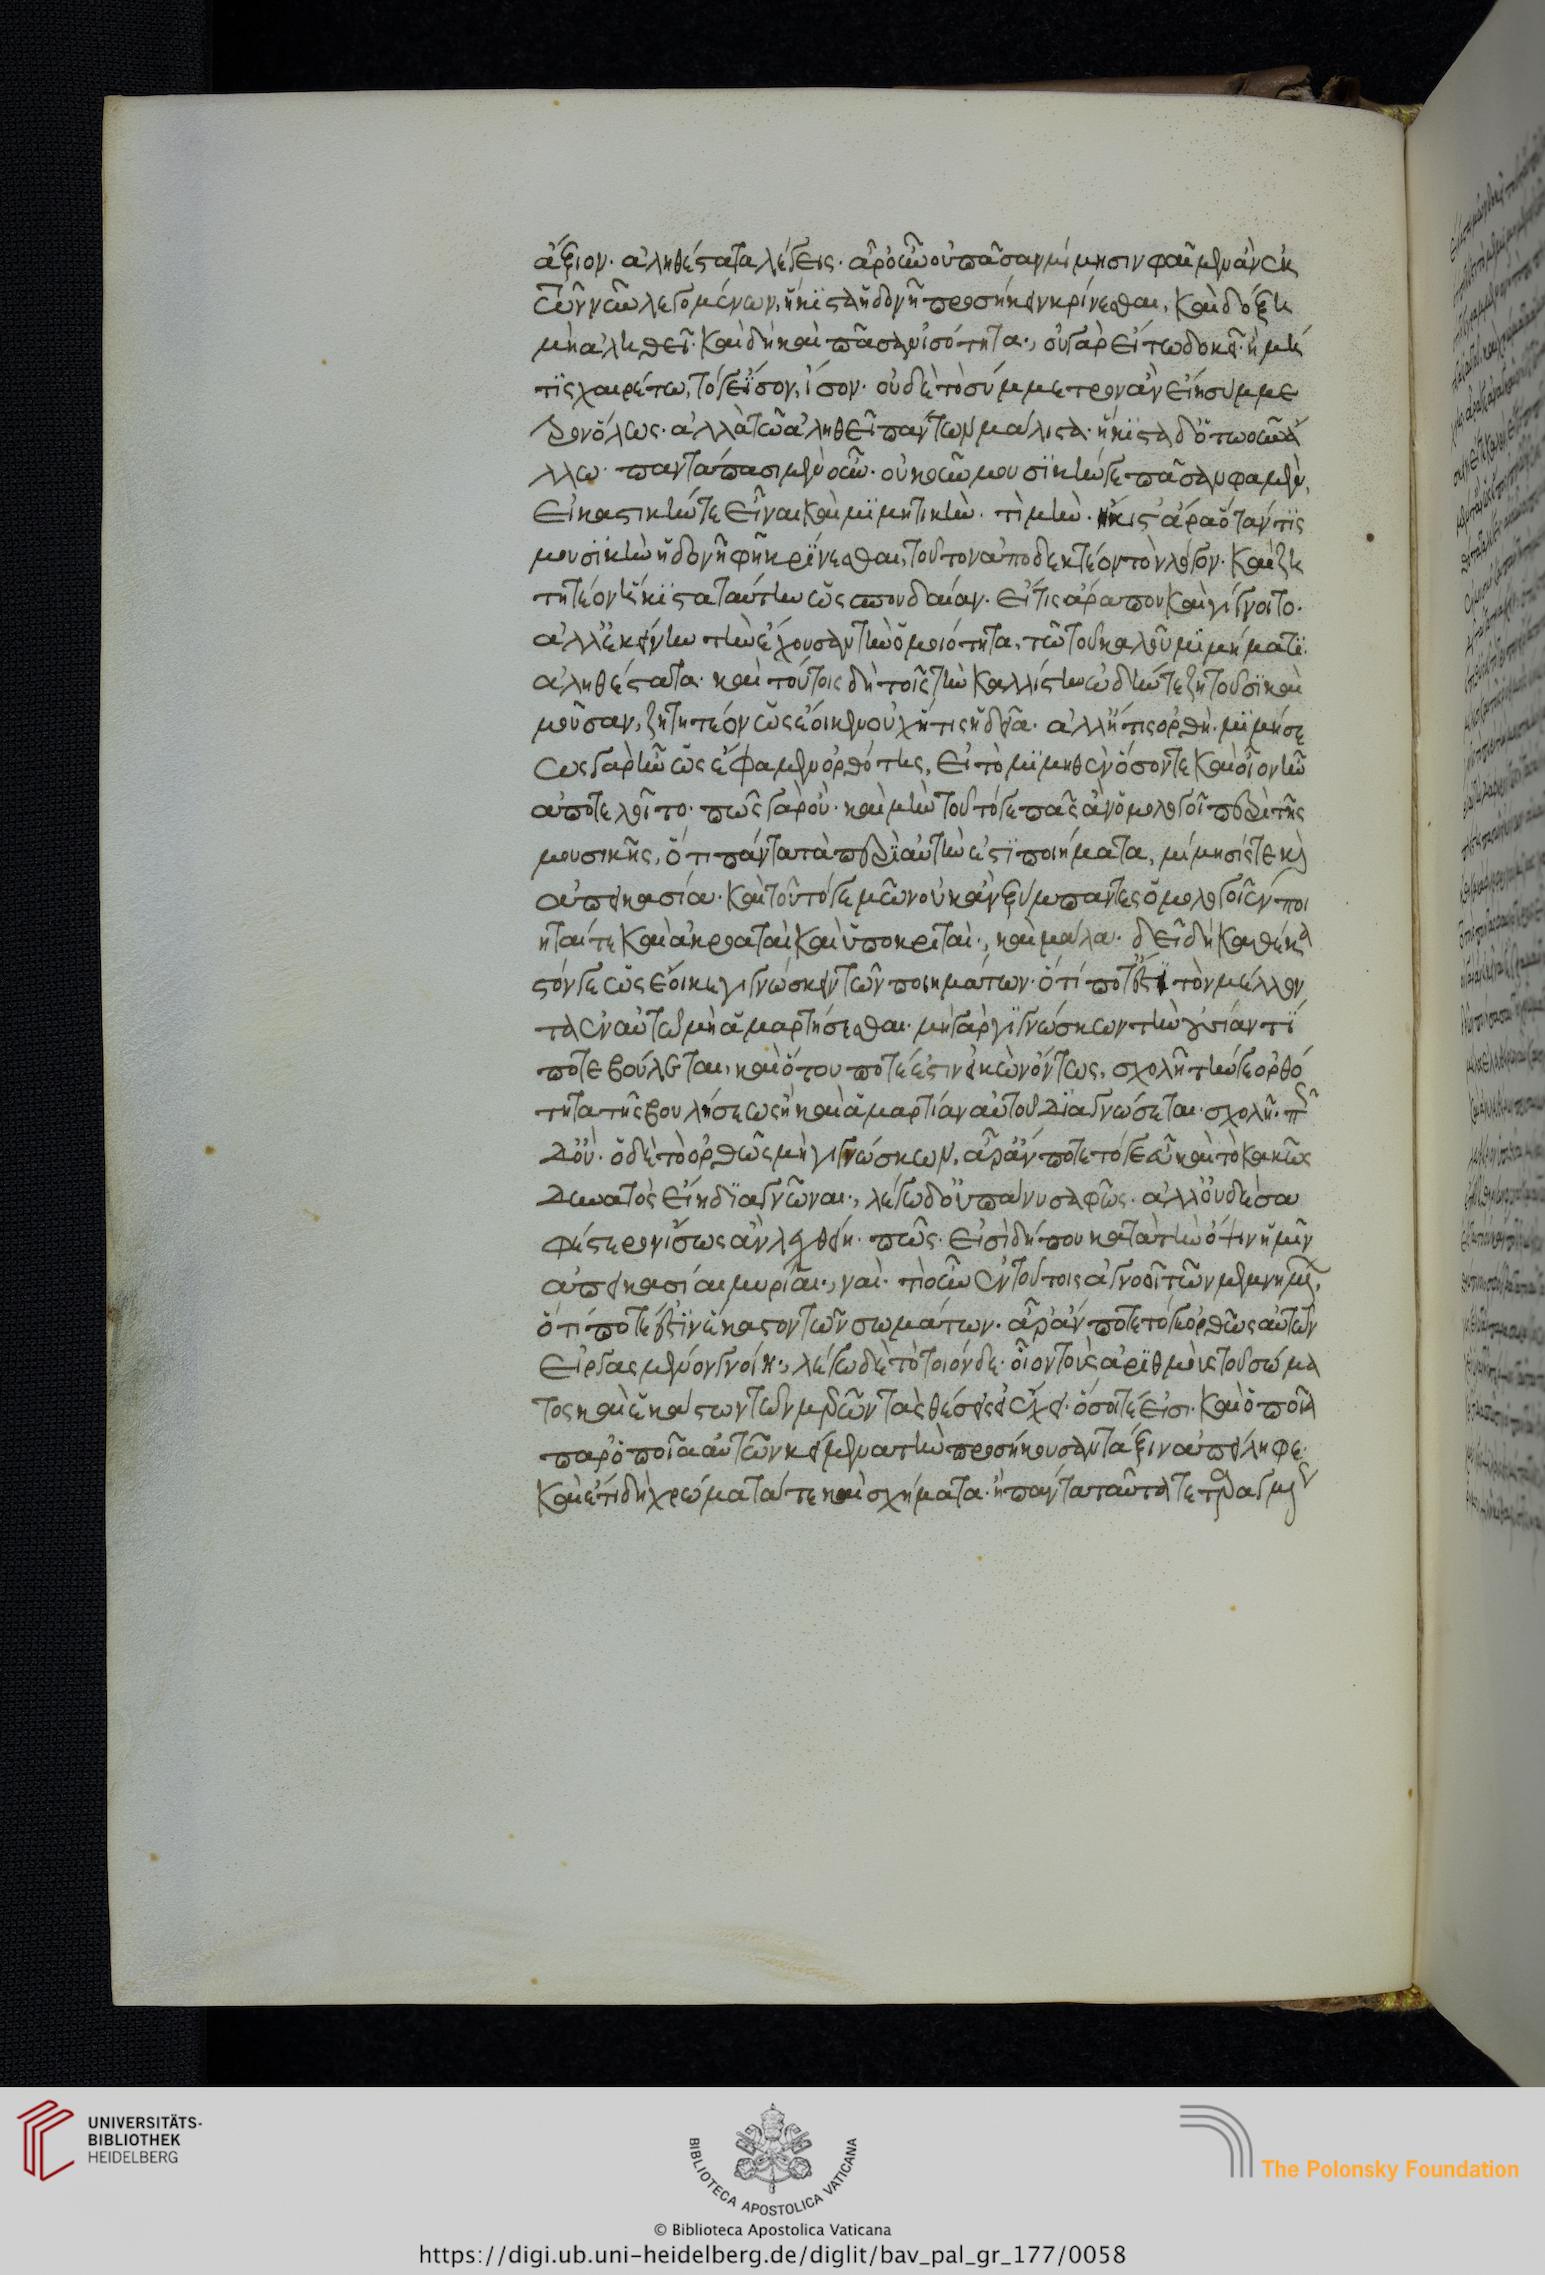 ἄξιον· ἀληθέστατα λέγεις· ἆρ' οὖν οὐ πᾶσαν μίμησιν φαῖμεν ἂν ἐκ
τῶν νῦν λεγομένων, ἥκιστα ἡδονῇ προσήκειν κρίνεσθαι, καὶ δόξῃ
μὴ ἀληθεῖ· καὶ δὴ καὶ πᾶσαν ἰσότητα· οὐ γὰρ εἴ τῳ δοκεῖ· ἢ μή
τις χαίρει τῳ, τό γε ἴσον, ἴσον· οὐδὲ τὸ σύμμετρον ἂν εἴη σύμμε
τρον ὅλως· ἀλλὰ τῷ ἀληθεῖ πάντων μάλιστα· ἥκιστα δὲ ὅτῳ οὖν ἄ
λλῳ· παντάπασι μὲν οὖν· οὐκοῦν μουσικήν γε πᾶσαν φαμὲν,
εἰκαστικήν τε εἶναι καὶ μιμητικήν· τί μήν· ἥκιστ' ἄρα ὅταν τις
μουσικὴν ἡδονῇ φῇ κρίνεσθαι, τοῦτον ἀποδεκτέον τὸν λόγον· καὶ ζη
τητέον ἥκιστα ταύτην ὡς σπουδαίαν· εἴ τις ἄρα που καὶ γίγνοιτο·
ἀλλ' ἐκείνην τὴν ἔχουσαν τὴν ὁμοιότητα, τῷ τοῦ καλοῦ μιμήματι·
ἀληθέστατα· καὶ τούτοις δὴ τοῖς τὴν καλλίστην ᾠδήν τε ζητοῦσι καὶ
μοῦσαν, ζητητέον ὡς ἔοικεν οὐχ ἥτις ἡδεῖα· ἀλλ' ἥτις ὀρθή· μιμήσε
ως γὰρ ἦν ὥς ἔφαμεν ὀρθότης, εἰ τὸ μιμηθὲν ὅσον τε καὶ οἷον ἦν
ἀποτελοῖτο· πῶς γὰρ οὔ· καὶ μὴν τοῦτό γε πᾶς ἂν ὁμολογοῖ περὶ τῆς
μουσικῆς, ὅτι πάντα τὰ περὶ αὐτήν ἐστι ποιήματα, μίμησίς τε καὶ
ἀπεικασία· καὶ τοῦτό γε μῶν οὐκ ἂν ξύμπαντες ὁμολογοῖεν ποι
ηταί τε καὶ ἀκροαταὶ καὶ ὑποκριταί· καὶ μάλα· δεῖ δὴ καθ' ἕκα
στόν γε ὡς ἔοικε γιγνώσκειν τῶν ποιημάτων· ὅτί ποτ' ἐστὶ τὸν μέλλον
τα ἐν αὐτῷ μὴ ἁμαρτήσεσθαι· μὴ γὰρ γιγνώσκων τὴν οὐσίαν τί
ποτε βούλεται, καὶ ὅτου ποτέ ἐστιν εἰκὼν ὄντως, σχολῇ τήν γε ὀρθό
τητα τῆς βουλήσεως ἢ καὶ ἁμαρτίαν αὐτοῦ διαγνώσεται· σχολῇ· πῶς
δ' οὔ· ὁ δὲ τὸ ὀρθῶς μὴ γιγνώσκων, ἆρ' ἄν ποτε τό γε εὖ καὶ τὸ κακῶς
δυνατὸς εἴη διαγνῶναι· λέγω δ' οὐ πάνυ σαφῶς· ἀλλ' ὧδε σα
φέστερον ἴσως ἂν λεχθείη· πῶς· εἰσὶ δήπου κατὰ τὴν ὄψιν ἡμῖν
ἀπεικασίαι μυρίαι· ναί· τί οὖν ἐν τούτοις ἀγνοοῖ τῶν μεμιμημένων,
ὅτί ποτέ ἐστιν ἕκαστον τῶν σωμάτων· ἆρ' ἄν ποτε τό γε ὀρθῶς αὐτῶν
εἰργασμένον γνοίη· λέγω δὲ τὸ τοιόνδε· οἷον τοὺς ἀριθμοὺς τοῦ σώμα
τος καὶ ἑκάστων τῶν μερῶν τὰς θέσεις εἰ ἔχει· ὅσοι τέ εἰσι· καὶ ὁποῖα
παρ' ὁποῖα αὐτῶν κείμενα τὴν προσήκουσαν τάξιν ἀπείληφε·
καὶ ἔτι δὴ χρώματά τε καὶ σχήματα· ἢ πάντα ταῦτά τεταραγμέν
UNIVERSITÄTS-
BIBLIOTHEK
HEIDELBERG
BIBLIOTECA APOSTOLICA VATICANA
The Polonsky Foundation
© Biblioteca Apostolica Vaticana
https://digi.ub.uni-heidelberg.de/diglit/bav_pal_gr_177/0058